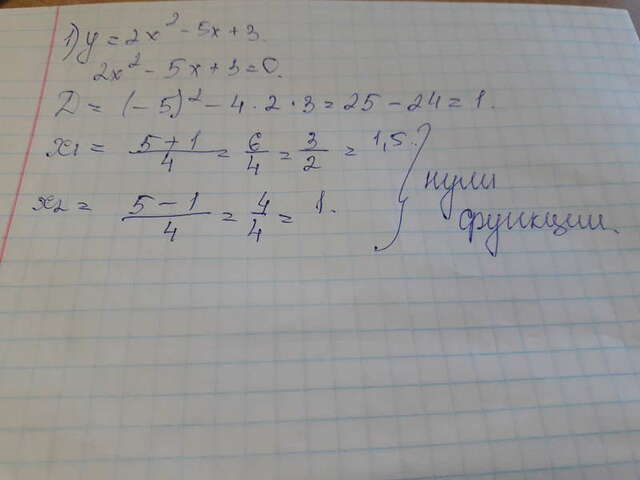 1) y = 2x² - 5x + 3.
2x² - 5x + 3 = 0.
D = (-5)² - 4 · 2 · 3 = 25 - 24 = 1.
x₁ = (5+1)/4 = 6/4 = 3/2 = 1,5.
x₂ = (5-1)/4 = 4/4 = 1.
нули
функции.